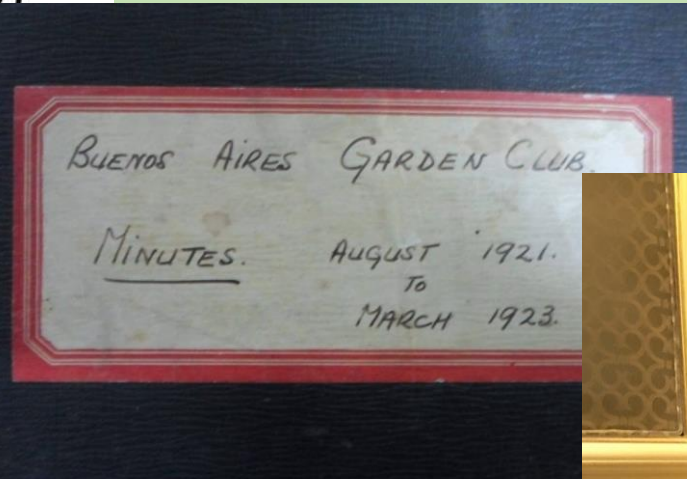 BUENOS AIRES GARDEN CLUB.
MINUTES. AUGUST 1921.
TO
MARCH 1923.